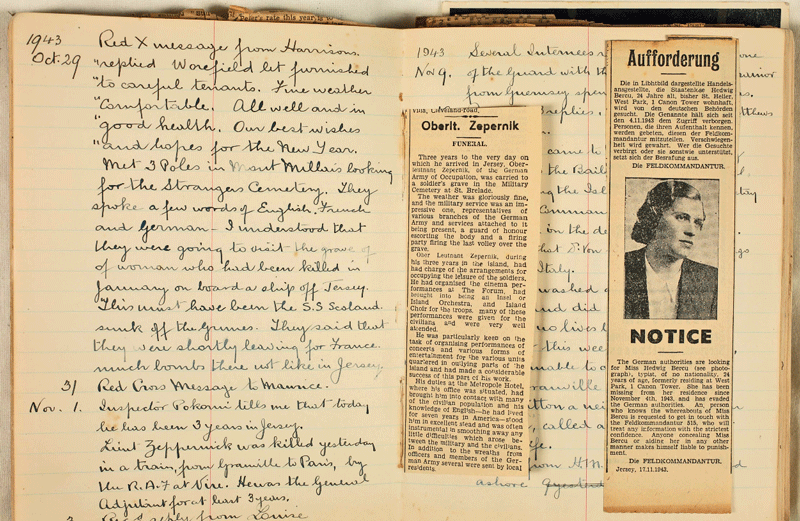 1943
Oct. 29
Red X message from Harrisons.
"replied Worefield let furnished
"to careful tenants. Fine weather
"Comfortable. All well and in
"good health. Our best wishes
"and hopes for the New Year.
Met 3 Poles in Mount Millais looking
for the Strangers Cemetery. They
spoke a few words of English, French
and German - I understood that
they were going to visit the grave of
of woman who had been killed in
January on board a ship off Jersey.
This must have been the S.S Scotland
sunk off the Grunes. They said that
they were shortly leaving for France.
much bombs there not like in Jersey.
31 Red Cross Message to Maurice.
Nov. 1. Inspector Pokorni tells me that today
he has been 3 years in Jersey.
Liut Zeppernick was killed yesterday
in a train, from Granville to Paris, by
the R.A.F at Vire. He was the General
Adjutant for at least 3 years.
reply from Louise
1943
Nov 9.
Several Internees
of the Guard with th
from Guernsey spen
replies.
came to
the Bail
the Isl
Comman
on the de
that Dr Von
Italy.
washed a
and did
no lives l
this wee
unable to
ranville
called a
from H.M.
ashore
Villa, Cleveland-road,
Oberlt. Zepernik
FUNERAL.
Three years to the very day on
which he arrived in Jersey, Ober-
leutnant Zepernik, of the German
Army of Occupation, was carried to
a soldier's grave in the Military
Cemetery at St. Brelade.
The weather was gloriously fine,
and the military service was an im-
pressive one, representatives of
various branches of the German
Army and services attached to it
being present, a guard of honour
escorting the body and a firing
party firing the last volley over the
grave.
Ober Leutnant Zepernik, during
his three years in the Island, had
had charge of the arrangements for
occupying the leisure of the soldiers.
He had organised the cinema per-
formances at The Forum, had
brought into being an Insel or
Island Orchestra, and Island
Choir for the troops. many of these
performances were given for the
civilians and were very well
attended.
He was particularly keen on the
task of organising performances of
concerts and various forms of
entertainment for the various units
quartered in outlying parts of the
Island and had made a considerable
success of this part of his work.
His duties at the Metropole Hotel,
where his office was situated, had
brought him into contact with many
of the civilian population and his
knowledge of English—he had lived
for seven years in America—stood
him in excellent stead and was often
instrumental in smoothing away any
little difficulties which arose be-
tween the military and the civilians.
In addition to the wreaths from
officers and members of the Ger-
man Army several were sent by local
residents.
Aufforderung
Die in Lihtbild dargestellte Handels-
angestellte, die Staatenlose Hedwig
Bercu, 24 Jahre alt, bisher St. Helier,
West Park, 1 Canon Tower wohnhaft,
wird von den deutschen Behörden
gesucht. Die Genannte hält sich seit
den 4.11.1943 dem Zugriff verborgen.
Personen, die ihren Aufenthalt kennen,
werden gebeten, diesen der Feldkom-
mandantur mitzuteilen. Verschwiegen-
heit wird gewahrt. Wer die Gesuchte
verbirgt oder sie sonstwie unterstützt,
setzt sich der Besrafung aus.
Die FELDKOMMANDANTUR.
NOTICE
The German authorities are looking
for Miss Hedwig Bercu (see photo-
graph), typist, of no nationality, 24
years of age, formerly residing at West
Park, 1 Canon Tower. She has been
missing from her residence since
November 4th, 1943, and has evaded
the German authorities. Any person
who knows the whereabouts of Miss
Bercu is requested to get in touch with
the Feldkommandantur 515, who will
treat any information with the strictest
confidence. Anyone concealing Miss
Bercu or aiding her in any other
manner makes himself liable to punish-
ment.
Die FELDKOMMANDANTUR.
Jersey, 17.11.1943.